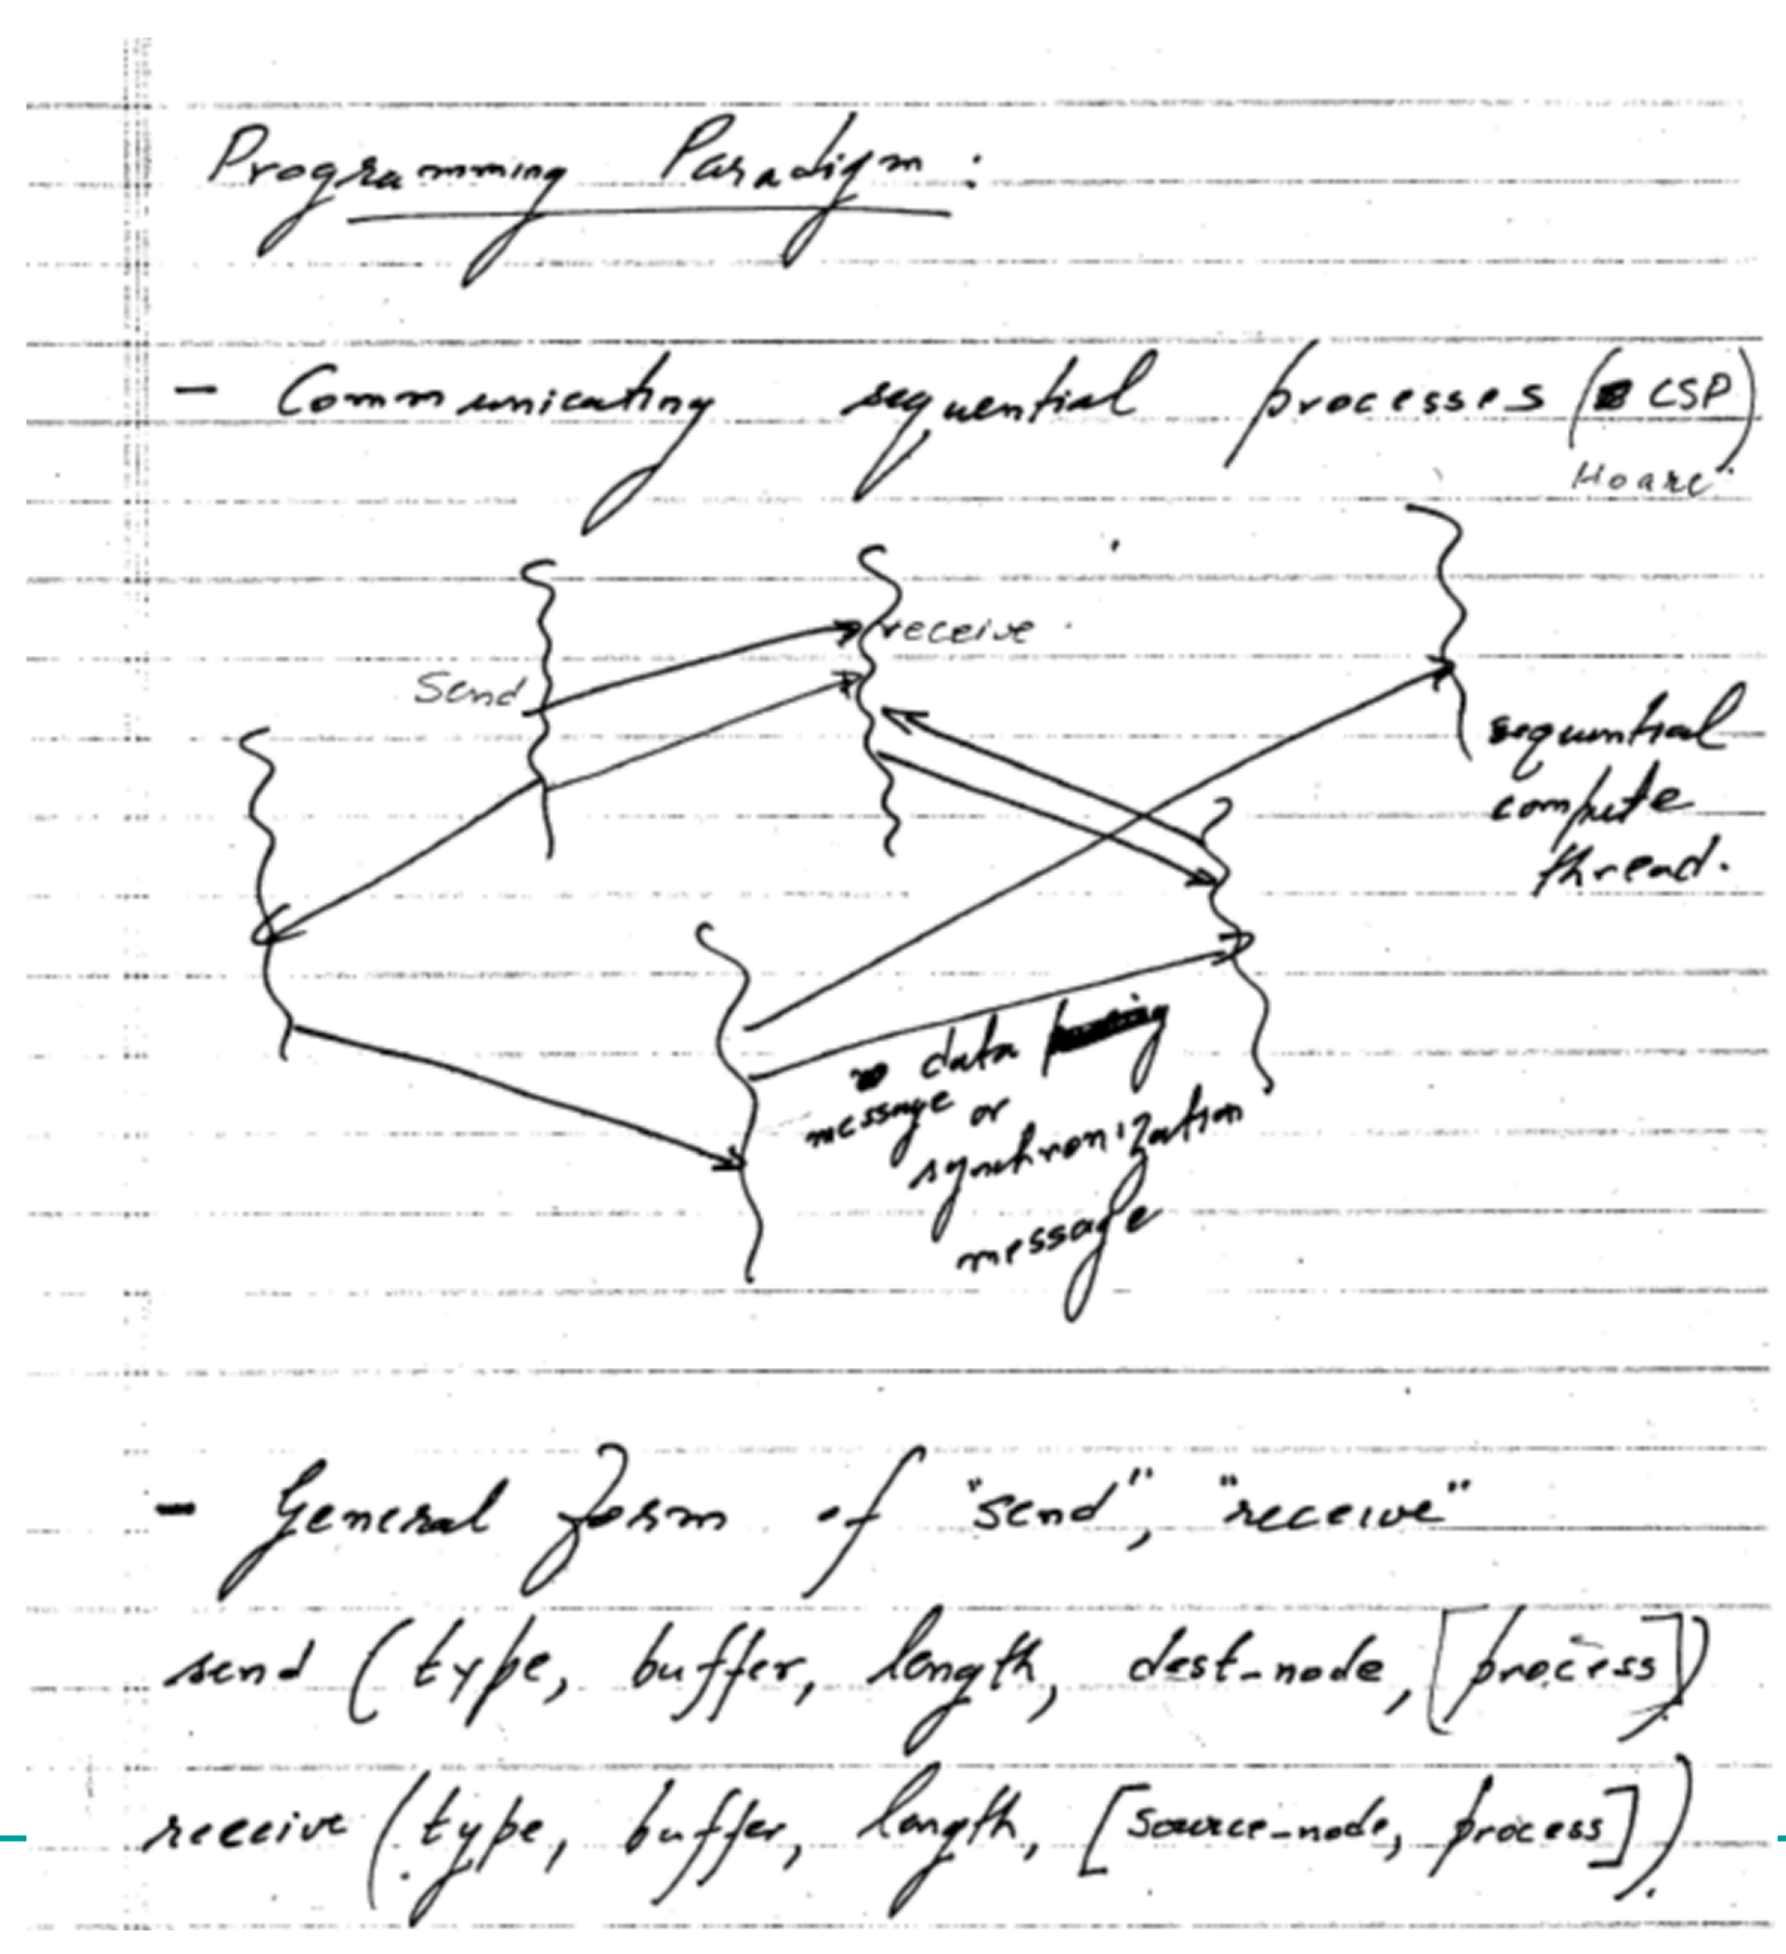 Programming Paradigm :
- Communicating sequential processes (CSP)
Hoare.
receive
Send
sequential
compute
thread.
data
message or
synchronization
message
- General form of "send", "receive"
send (type, buffer, length, dest-node, [process])
receive (type, buffer, length, [source-node, process])